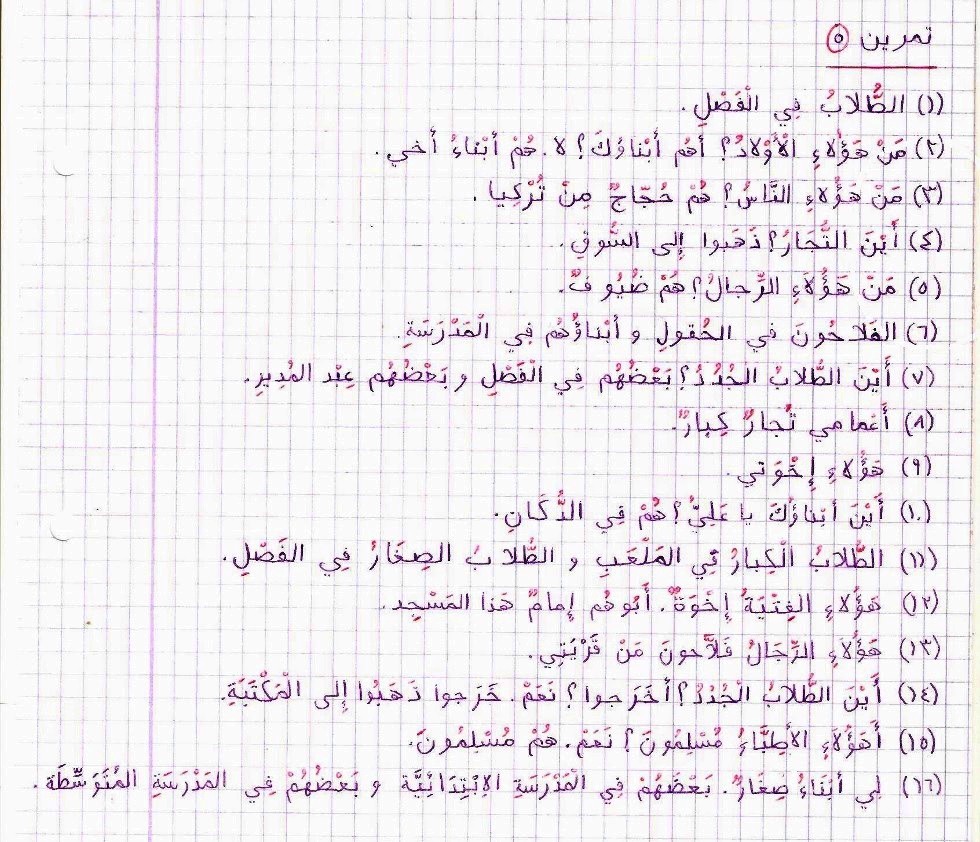 تمرين ٥
(١) الطُّلابُ فِي الْفَصْلِ.
(٢) مَنْ هَؤُلاءِ الْأَوْلادُ؟ أَهُم أَبْناؤُكَ؟ لا. هُمْ أَبْناءُ أَخي.
(٣) مَنْ هَؤُلاءِ النَّاسُ؟ هُمْ حُجّاجٌ مِنْ تُرْكِيا.
(٤) أَيْنَ التُّجَارُ؟ ذَهَبوا إِلى السُّوقِ.
(٥) مَنْ هَؤُلَاءِ الرِّجالُ؟ هُمْ ضُيُوفٌ.
(٦) الفَلاحُونَ في الحُقولِ و أَبْناؤُهُم فِي الْمَدْرَسَةِ.
(٧) أَيْنَ الطُّلابُ الجُدُدُ؟ بَعْضُهُم فِي الْفَصْلِ و بَعْضُهُم عِنْد المُدِيرِ.
(٨) أَعْمامي تُجارٌ كِبارٌ.
(٩) هَؤُلاءِ إِخْوَتي.
(١٠) أَيْنَ أَبْناؤُكَ يا عَلِيُّ؟ هُمْ فِي الدُّكَانِ.
(١١) الطُّلابُ الْكِبارُ فِي المَلْعَبِ و الطُّلابُ الصِغَارُ فِي الفَصْلِ.
(١٢) هَؤُلاءِ الفِتْيَةُ إِخْوَةٌ. أَبُوهُم إِمامُ هَذا المَسْجِدِ.
(١٣) هَؤُلَاءِ الرِّجَالُ فَلَّاحونَ مَنْ قَرْيَتِي.
(١٤) أَيْنَ الطُّلابُ الْجُدُدُ؟ أخَرَجوا؟ نَعَمْ. خَرَجوا ذَهَبُوا إِلى الْمَكْتَبَةِ.
(١٥) أَهَؤُلَاءِ الأَطِبَّاءُ مُسْلِمُونَ؟ نَعَمْ. هُمْ مُسْلِمُونَ.
(١٦) لِي أَبْنَاءُ صِغَارٌ. بَعْضُهُمْ فِي الْمَدْرَسَةِ الِابْتِدَائِيَّة و بَعْضُهُمْ فِي المَدْرَسَةِ المُتَوَسِّطَة.